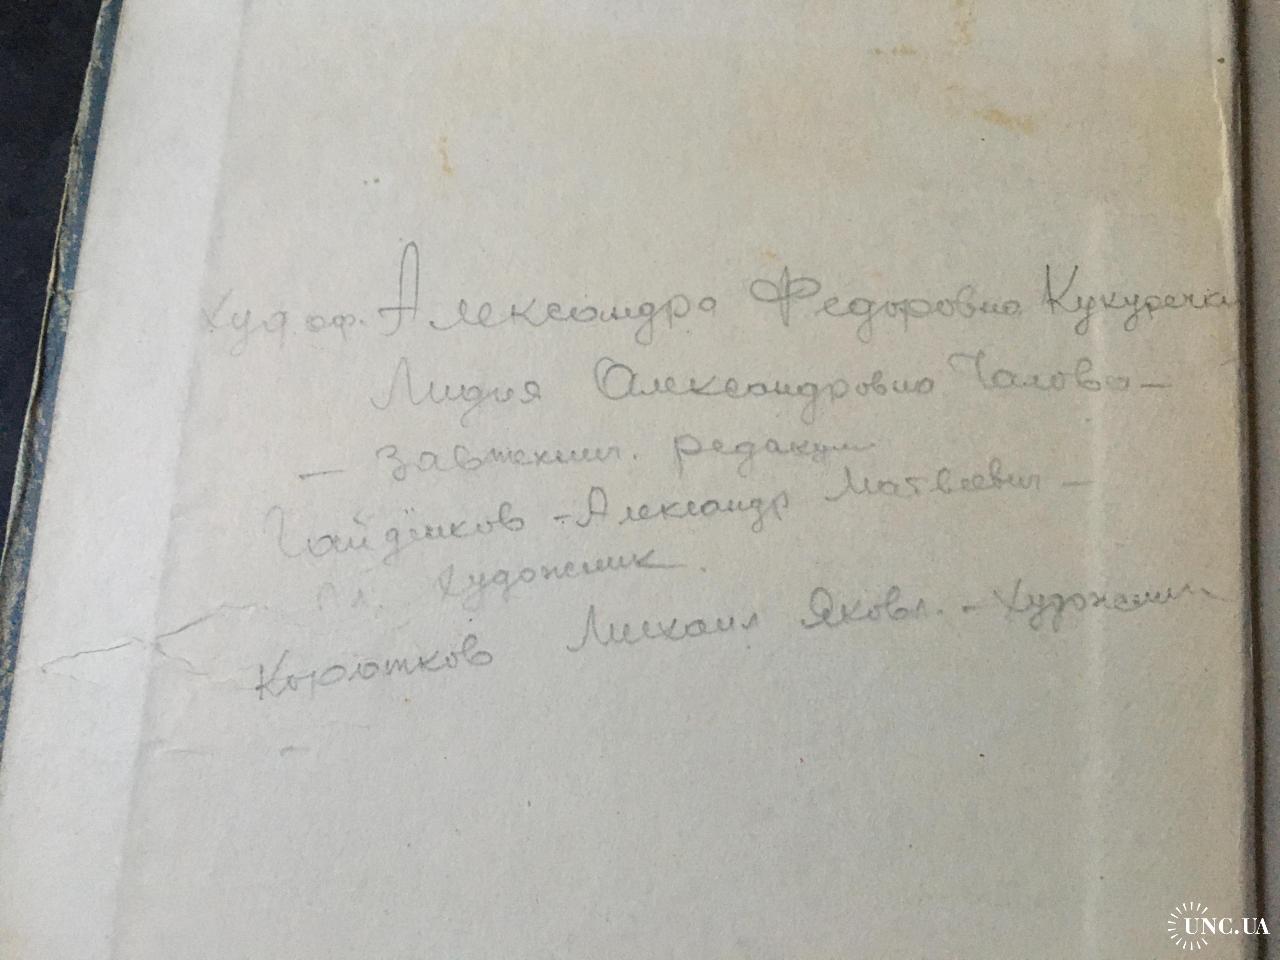 Худ оф. Александра Федоровна Кукуречки
Лидия Александровна Чалова –
– Завженил. редакции
Гайдёнков – Александр Матвеевич –
Гл. Художник.
Коротков Михаил Яковл. – Художник
UNC.UA